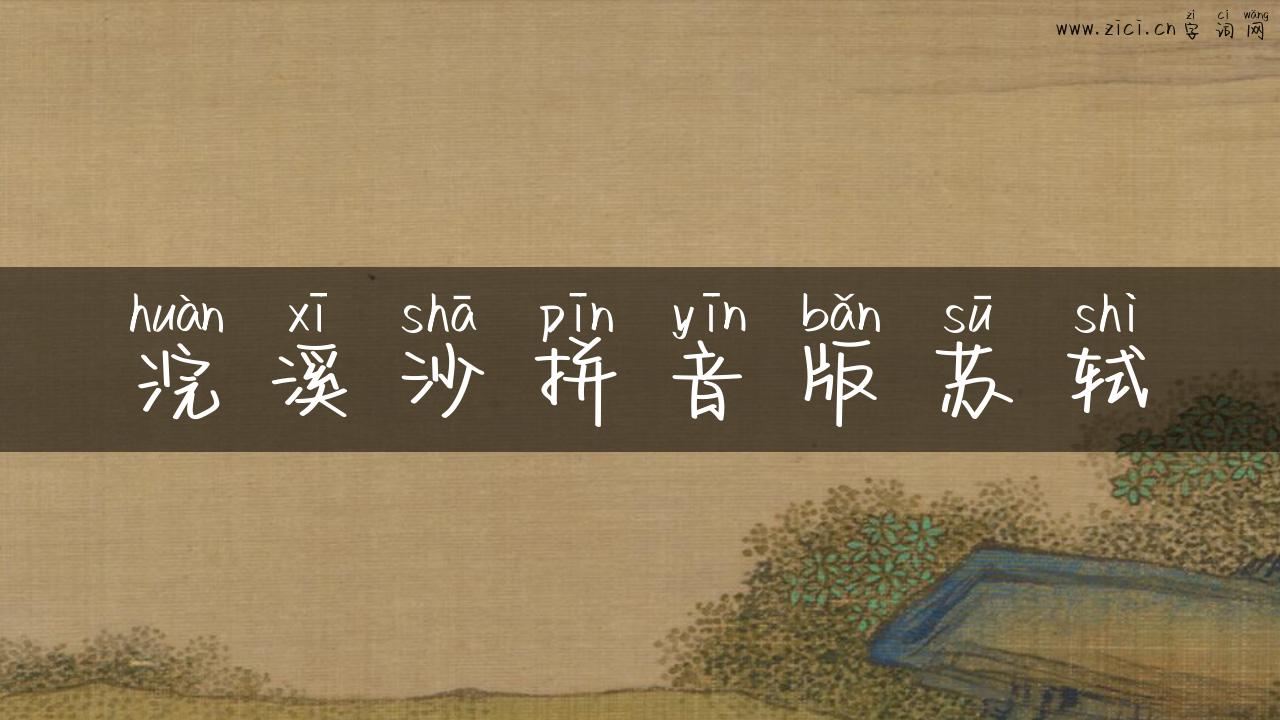 zì cí wǎng
www.zici.cn 字词网
huàn xī shā pīn yīn bǎn sū shì
浣溪沙拼音版苏轼